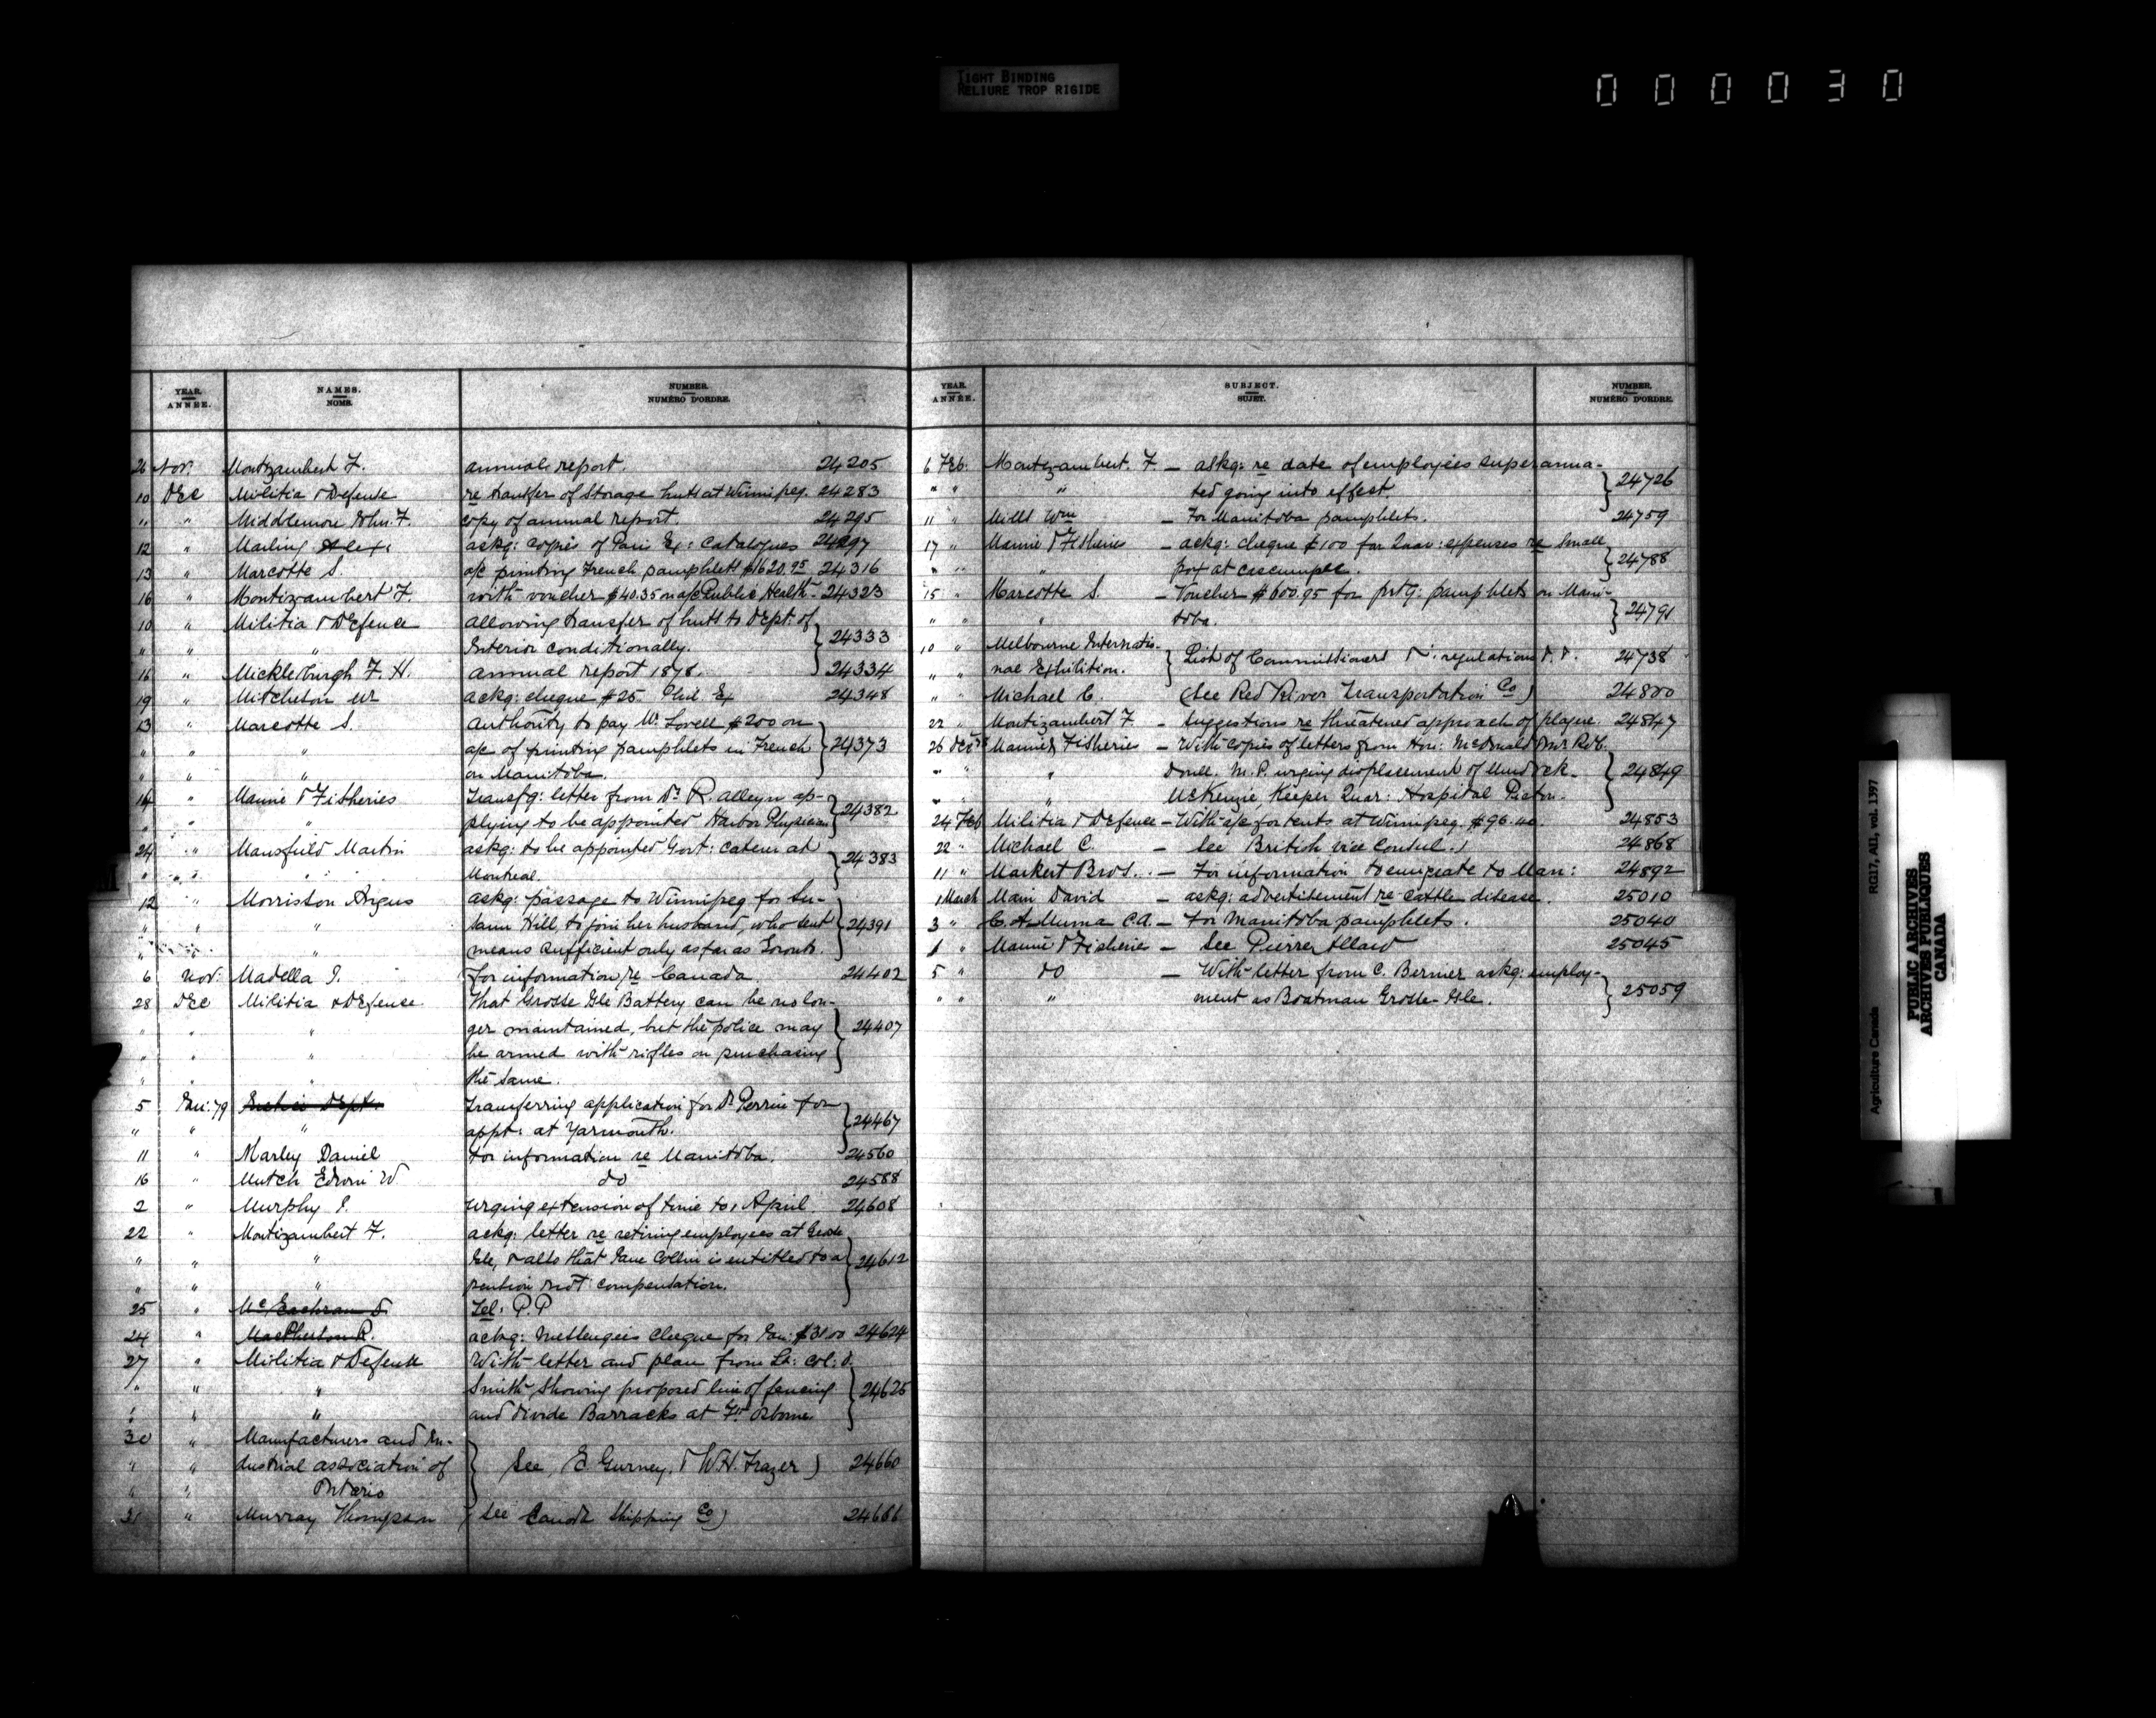 TIGHT BINDING
RELIURE TROP RIGIDE
000030
YEAR. ANNÉE. NAMES. NOMS. NUMBER. NUMÉRO D'ORDRE.
26 Nov. Montizambert F. annual report. 24205
10 Dec Militia & Defense re transfer of Storage hutts at Winnipeg. 24283
" " Middlemore John. F. copy of annual report. 24295
12 " Mailing Alex: askg: copies of Paris Ex: Catalogues 24297
13 " Marcotte S. a/c printing French pamphlets $1620.95 24316
16 " Montizambert F. with voucher $40.35 on a/c Public Health 24323
10 " Militia & Defence allowing transfer of hutts to Dept: of
" " " Interior conditionally. 24333
16 " Mickleburgh F. H. annual report 1878. 24334
19 " Mitcheson Mr ackg: cheque $25. Phil. Ex 24348
13 " Marcotte S. authority to pay Mr Lovell $200 on
" " " a/c of printing pamphlets in French 24373
" " " on Manitoba.
14 " Marine & Fisheries Transfg: letter from Dr R. Alleyn ap-
" " plying to be appointed Harbor Physician 24382
24 " Mansfield Martin askg: to be appointed Govt: Caterer at
" " " Montreal. 24383
12 " Morrisson Angus askg: passage to Winnipeg for Su-
" " " sann Hill, to join her husband, who sent 24391
" means sufficient only as far as Toronto.
6 Nov. Madella J. for information re Canada. 24402
28 Dec Militia & Defense That Grosse Isle Battery can be no lon-
" " " ger maintained, but the police may 24407
" " " be armed with rifles on purchasing
" " " the same.
5 Jan: 79 Dept. Transferring application for Dr Perrin for
" " " appt: at Yarmouth. 24467
11 " Marley Daniel for information re Manitoba. 24560
16 " Mutch Edwin W do 24588
2 " Murphy J. urging extension of time to 1 April. 24608
22 " Montizambert F. ackg: letter re retiring employees at Grosse
" " " Isle, & also that Jane Collin is entitled to a 24612
" " " pension & not compensation.
25 " McEachran D. Tel: P.P
24 " MacPherson R. ackg: Messengers cheque for Jan: $31 00 24624
27 " Militia & Defense With letter and plan from Lt: Col: D.
" " " Smith showing proposed line of fencing 24625
" " " and divide Barracks at Ft Osborne
30 " Manufacturers and In-
" " dustrial association of See E Gurney, & W.H. Frazer) 24660
" " Ontario
31 " Murray Thompson (see Canada Shipping Co) 24666
YEAR. ANNÉE. SUBJECT. SUJET. NUMBER. NUMÉRO D'ORDRE.
6 Feb. Montizambert. F – askg: re date of employees superannua-
" " " ted going into effect. 24726
11 " Mills Wm – For Manitoba pamphlets. 24759
17 " Marine & Fisheries – askg: cheque $100 for Quar: expenses re Small
" " " pox at Cascumpec. 24788
15 " Marcotte S. – Voucher $600.95 for prtg: pamphlets on Mani-
" " " toba. 24791
10 " Melbourne Internatio-
" " nal Exhibition. List of Commissioners & regulations &. &. 24738
" " Michael C. (See Red River Transportation Co) 24800
22 " Montizambert F – Suggestions re threatened approach of plague. 24847
26 Dec 78 Marine & Fisheries – With copies of letters from Hon: McDonald & Mr Rob.
" " " Doull. M.P. urging displacement of
" " " McKenzie, Keeper Quar: Hospital Pictou. 24849
24 Feb Militia & Defence – With a/c for tents at Winnipeg. $96.40. 24853
22 " Michael C. – See British vice Consul.) 24868
11 " Markert Bros. – For information to emigrate to Man: 24892
1 March Main David – askg: advertisement re cattle disease. 25010
3 " C. A. Muma C.A. – For Manitoba pamphlets. 25040
1 " Marine & Fisheries – See Pierre Allard 25045
5 " do – With letter from C. Bernier askg: employ-
" " " ment as Boatman Grosse-Isle. 25059
Agriculture Canada RG17, AII, vol. 1397
PUBLIC ARCHIVES
ARCHIVES PUBLIQUES
CANADA